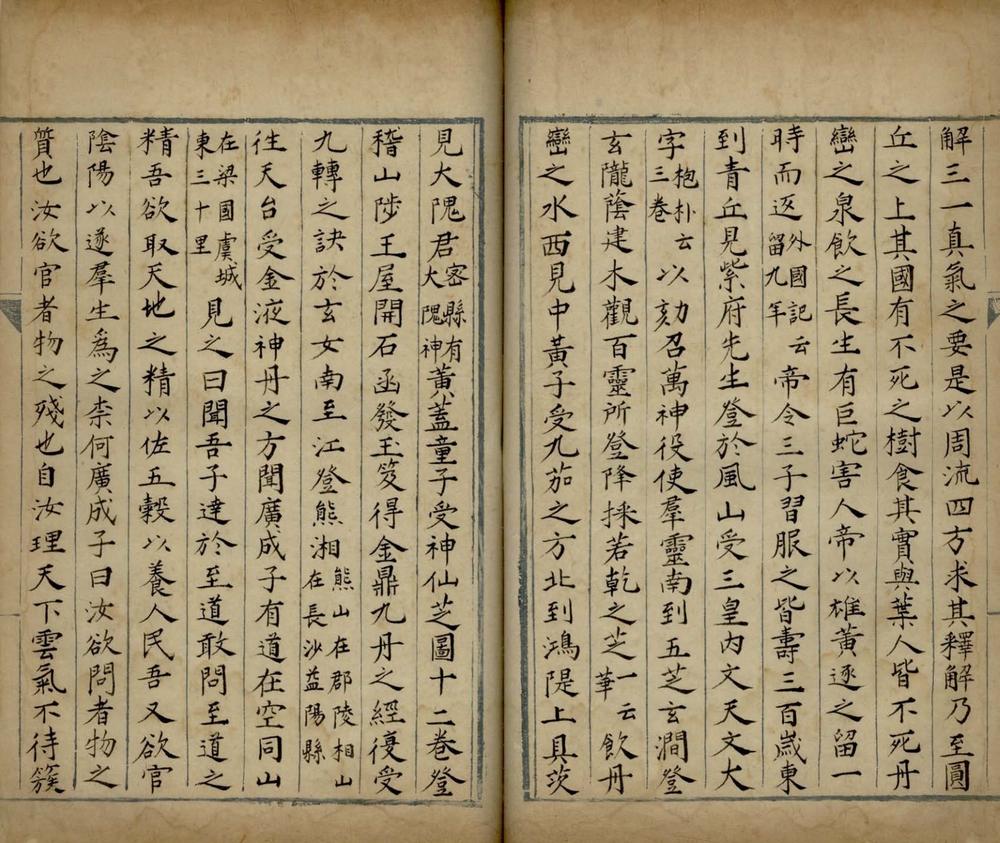 解三一真氣之要是以周流四方求其釋解乃至圓
丘之上其國有不死之樹食其實與葉人皆不死丹
巒之泉飲之長生有巨蛇害人帝以雄黃逐之留一
時而返外國記云留九年帝令三子習服之皆壽三百歲東
到青丘見紫府先生登於風山受三皇內文天文大
字抱朴云三卷以劾召萬神役使羣靈南到五芝玄澗登
玄隴蔭建木觀百靈所登降採若乾之芝一云華飲丹
巒之水西見中黃子受九茄之方北到鴻隄上具茨
見大隗君密縣有大隗神黃蓋童子受神仙芝圖十二卷登
稽山陟王屋開石函發玉笈得金鼎九丹之經復受
九轉之訣於玄女南至江登熊湘熊山在郡陵相山在長沙益陽縣
徃天台受金液神丹之方聞廣成子有道在空同山
在梁國虞城東三十里見之曰聞吾子達於至道敢問至道之
精吾欲取天地之精以佐五穀以養人民吾又欲官
陰陽以遂羣生為之柰何廣成子曰汝欲問者物之
質也汝欲官者物之殘也自汝理天下雲氣不待簇